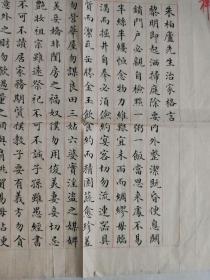 朱柏廬先生治家格言
黎明即起洒掃庭除要內外整潔既昏便息關
鎖門戶必親自檢點一粥一飯當思來處不易
半絲半縷恆念物力維艱宜未雨而綢繆毋臨
渴而掘井自奉必須儉約宴客切勿流連器具
質而潔瓦缶勝金玉飲食約而精園蔬愈珍羞
勿營華屋勿謀良田三姑六婆實淫盜之媒婢
美妾嬌非閨房之福奴僕勿用俊美妻妾切忌
艷妝祖宗雖遠祭祀不可不誠子孫雖愚經書
不可不讀居家務期質樸教子要有義方勿貪
意外之財勿飲過量之酒與肩挑貿易毋佔便